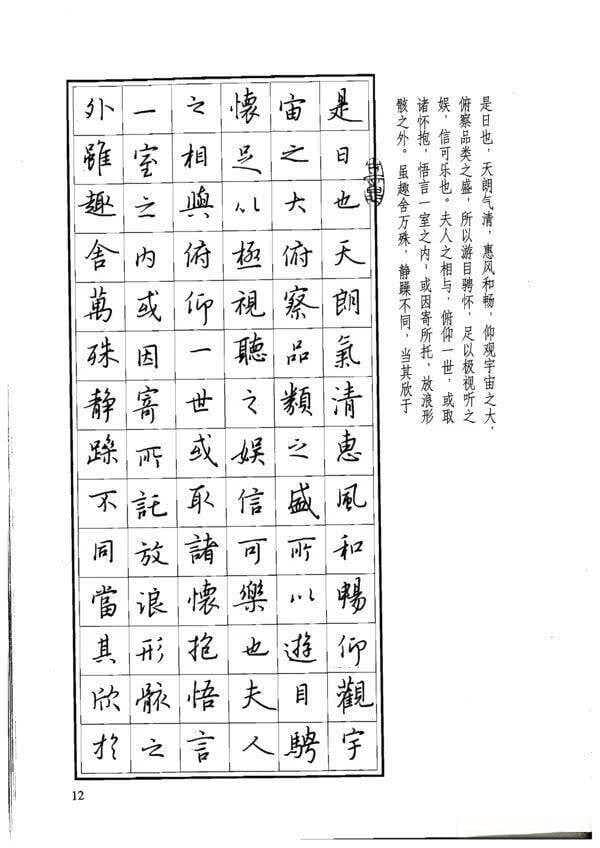 是日也，天朗气清，惠风和畅，仰观宇宙之大，
俯察品类之盛，所以游目骋怀，足以极视听之
娱，信可乐也。夫人之相与，俯仰一世，或取
诸怀抱，悟言一室之内，或因寄所托，放浪形
骸之外。虽趣舍万殊，静躁不同，当其欣于
是日也天朗氣清惠風和暢仰觀宇
宙之大俯察品類之盛所以遊目騁
懷足以極視聽之娱信可樂也夫人
之相與俯仰一世或取諸懷抱悟言
一室之内或因寄所託放浪形骸之
外雖趣舍萬殊静躁不同當其欣於
12